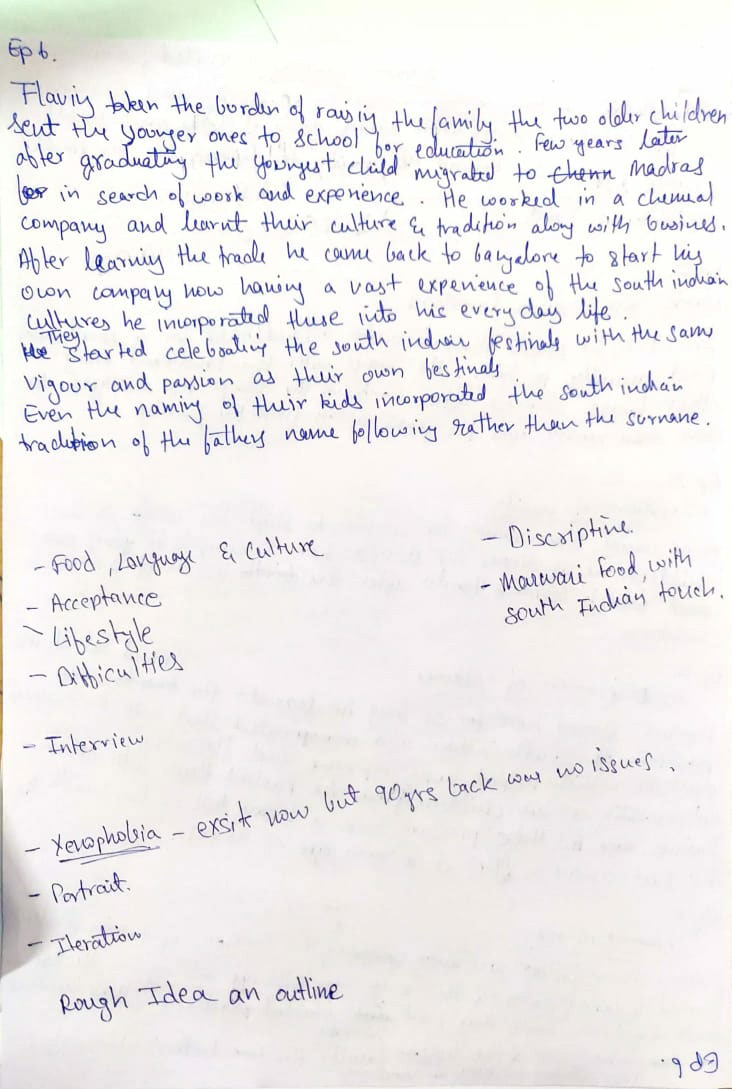 Ep 6.
Haviy taken the borden of raisiy the family the two older children
sent the younger ones to school for education. Few years later
after graduating the youngest child migrated to chenn Madras
for in search of work and experience. He worked in a chemical
company and learnt their culture & tradition along with busines.
After learniy the trade he came back to bangalore to start his
own company now having a vast experience of the south indian
cultures he incorporated these into his every day life.
He They started celebratiy the south indian festivals with the same
vigour and passion as their own festivals
Even the naming of their kids incorporated the south indian
tradition of the fathers name following rather than the surname.
- Food, Language & Culture
- Acceptance
- Lifestyle
- Difficulties
- Discriptive.
- Marwari food with
south Indian touch.
- Interview
- Xenophobia - exsit now but 90yrs back was no issues.
- Portrait.
- Iteration
Rough Idea an outline
Ep 6.